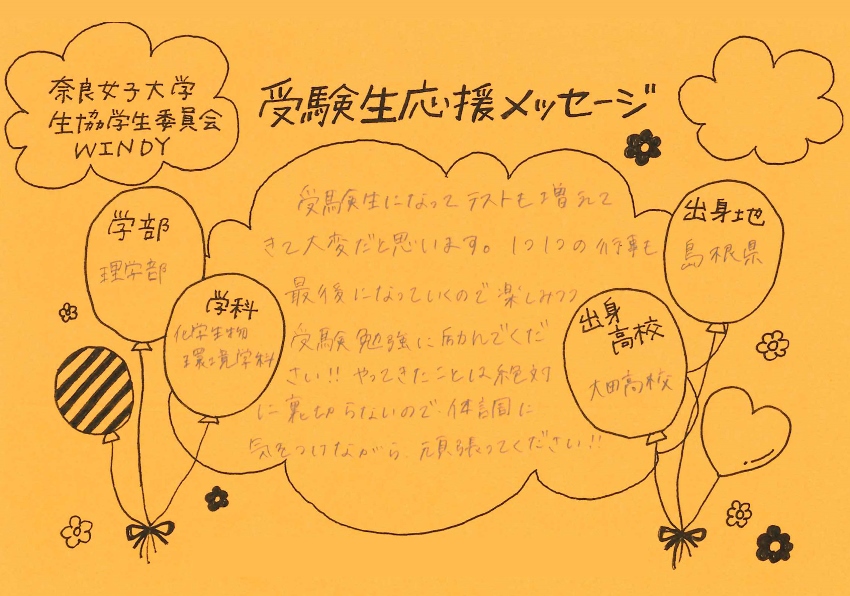 奈良女子大学
生協学生委員会
WINDY
受験生応援メッセージ
学部
理学部
学科
化学生物
環境学科
受験生になってテストも増えて
きて大変だと思います。1つ1つの行事も
最後になっていくので楽しみつつ
受験勉強に励んでくだ
さい!! やってきたことは絶対
に裏切らないので、体調に
気をつけながら、頑張ってください!!
出身地
島根県
出身
高校
大田高校